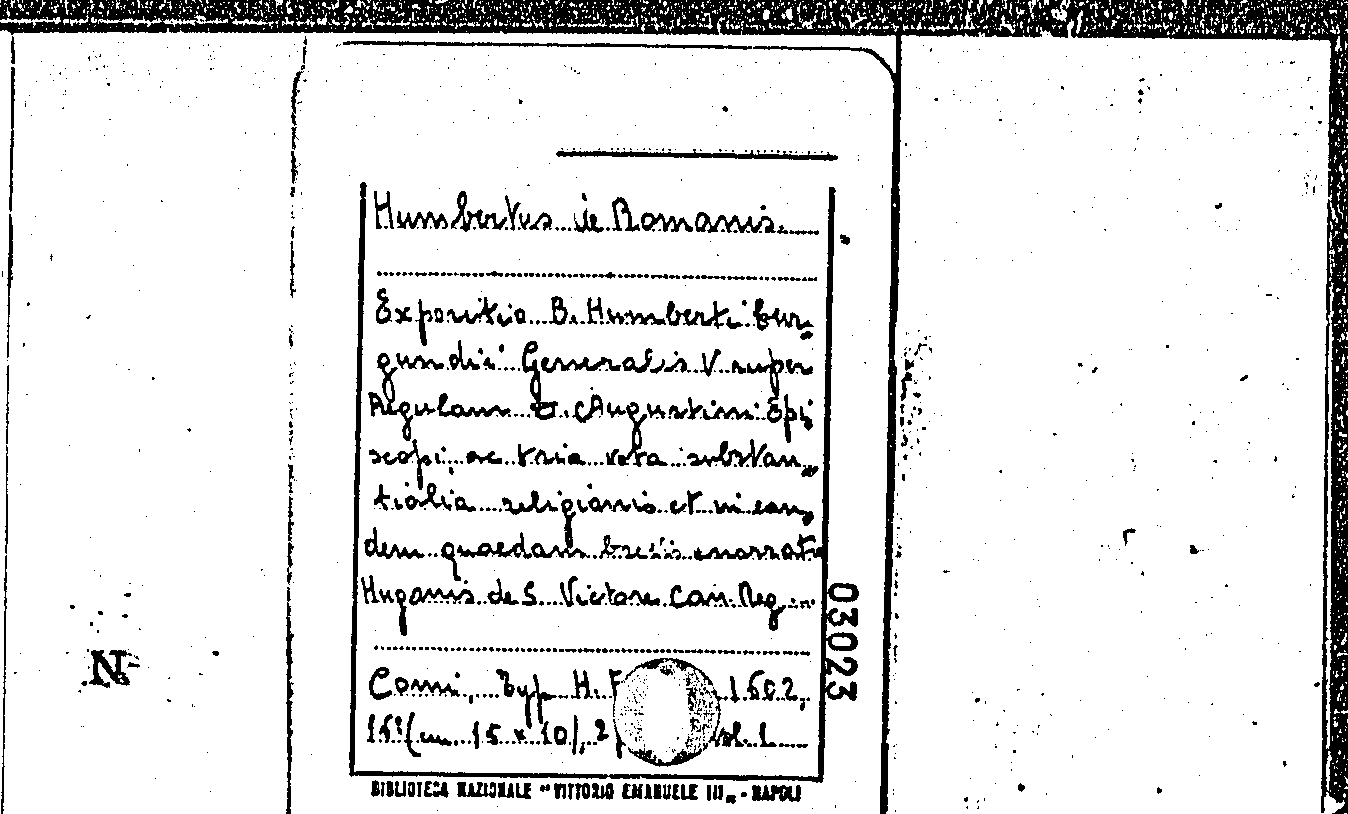 Humbertus de Romanis.
Expositio B. Humberti Bur,,
gundii Generalis V super
Regulam S. Augustini Epi,
scopi, ac tria vota substan,,
tialia religionis et in ean,
dem quaedam brevis enarratio
Hugonis de S. Victore Can. Reg.
Comi, Typ. H. F 1602,
16º (cm. 15 x 10), 2 vol. 1
BIBLIOTECA NAZIONALE "VITTORIO EMANUELE III„ - NAPOLI
03023
N